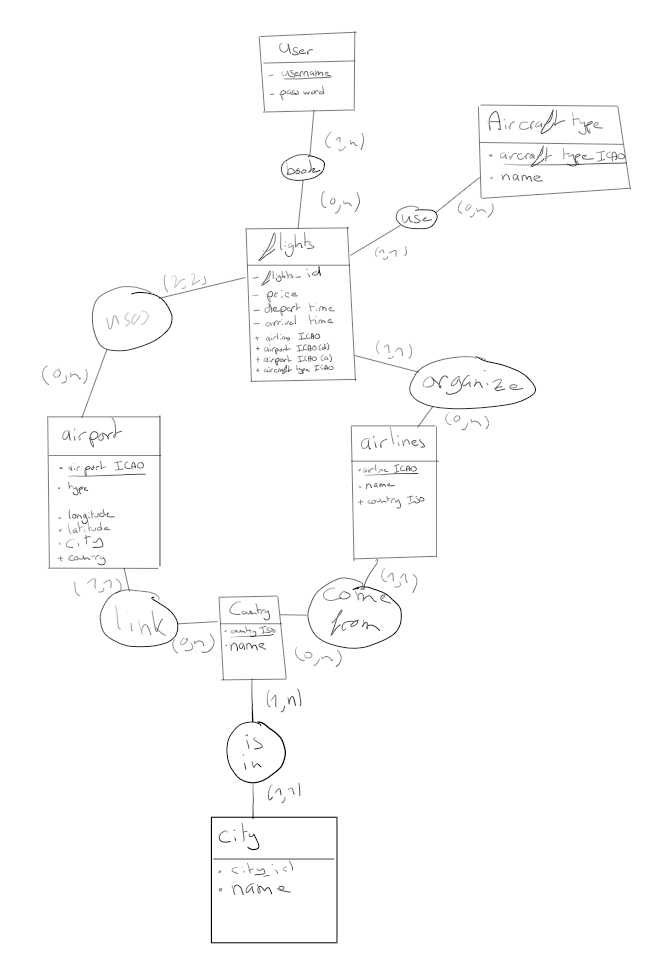 User
- username
- password
(1,n)
book
(0,n)
Aircraft type
- aircraft type ICAO
- name
(0,n)
use
(1,1)
flights
- flights_id
- price
- depart time
- arrival time
+ airline ICAO
+ airport ICAO (d)
+ airport ICAO (a)
+ aircraft type ICAO
(2,2)
(0,n)
(1,1)
organize
(0,n)
airport
- airport ICAO
- type
- longitude
- latitude
- city
+ country
airlines
- airline ICAO
- name
+ country ISO
(1,1)
link
(0,n)
Country
- country ISO
- name
(0,n)
come
from
(1,1)
(1,n)
is
in
(1,1)
city
- city_id
- name